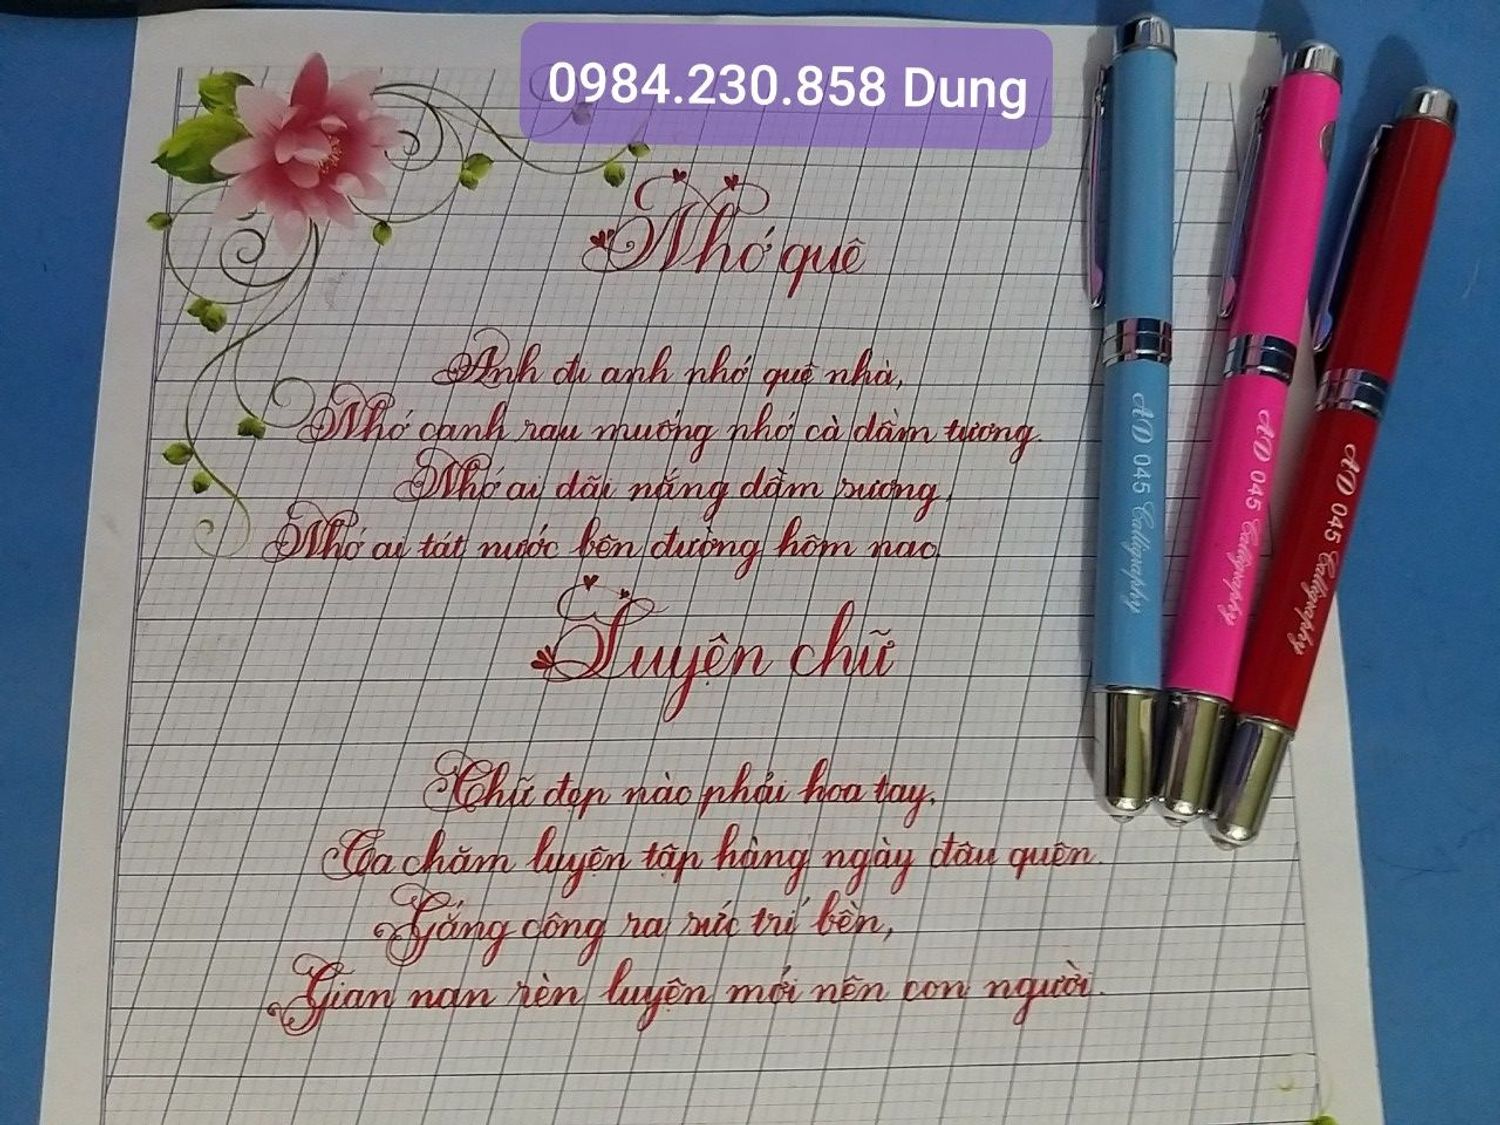 0984.230.858 Dung
Nhớ quê
Anh đi anh nhớ quê nhà,
Nhớ canh rau muống nhớ cà dầm tương.
Nhớ ai dãi nắng dầm sương,
Nhớ ai tát nước bên đường hôm nao.
Luyện chữ
Chữ đẹp nào phải hoa tay,
Ta chăm luyện tập hàng ngày đâu quên.
Gắng công ra sức trí bền,
Gian nan rèn luyện mới nên con người.
AD 045 Calligraphy
AD 045 Calligraphy
AD 045 Calligraphy